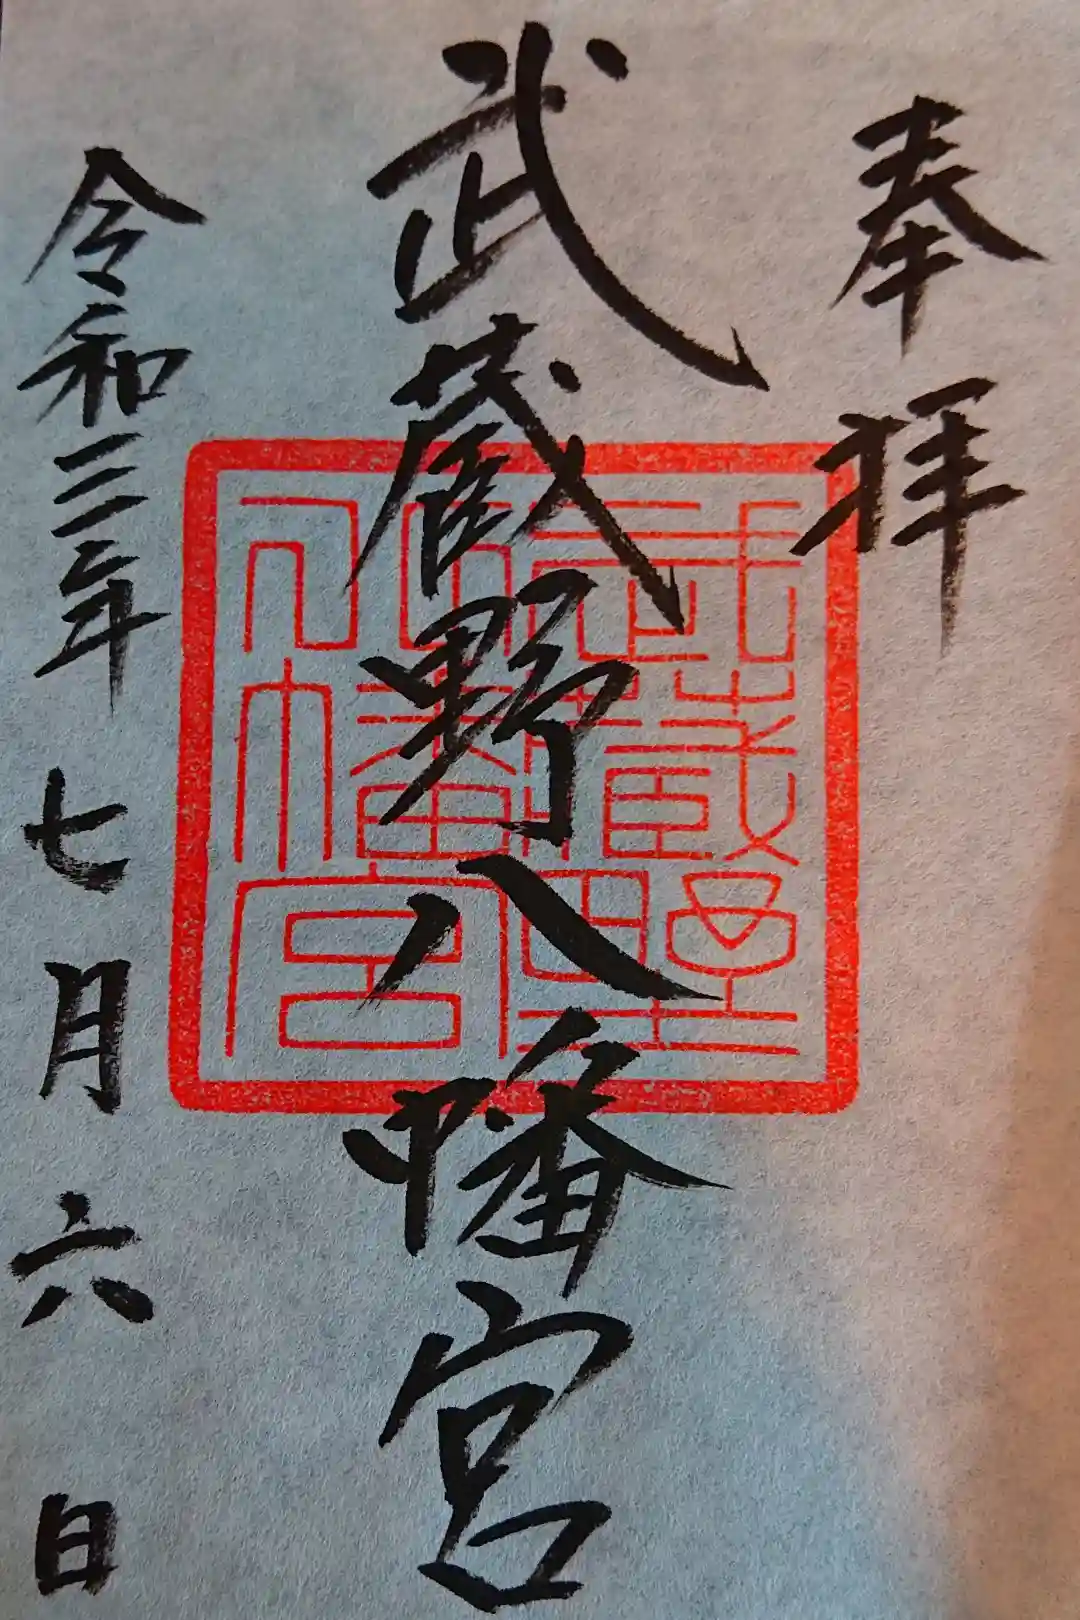 奉拝
武蔵野八幡宮
武蔵野八幡宮
令和三年七月六日